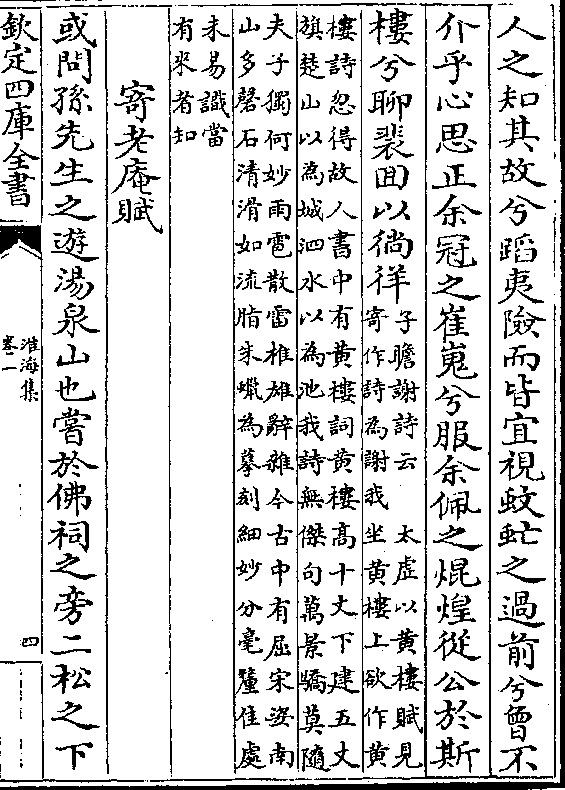 人之知其故兮蹈夷險而皆宜視蚊虻之過前兮曾不
介乎心思正余冠之崔嵬兮服余佩之焜煌從公於斯
樓兮聊裴囬以徜徉
子瞻謝詩云　太虛以黄樓賦見
寄作詩為謝我坐黄樓上欲作黄
樓詩忽得故人書中有黄樓詞黄樓高十丈下建五丈
旗楚山以為城泗水以為池我詩無傑句萬景驕莫隨
夫子獨何妙雨雹散雷椎雄辭雜今古中有屈宋姿南
山多磬石清滑如流脂朱蠟為摹刻細妙分毫釐佳處
未易識當
有来者知
寄老庵賦
或問孫先生之遊湯泉山也嘗於佛祠之旁二松之下
欽定四庫全書
淮海集
卷二
四